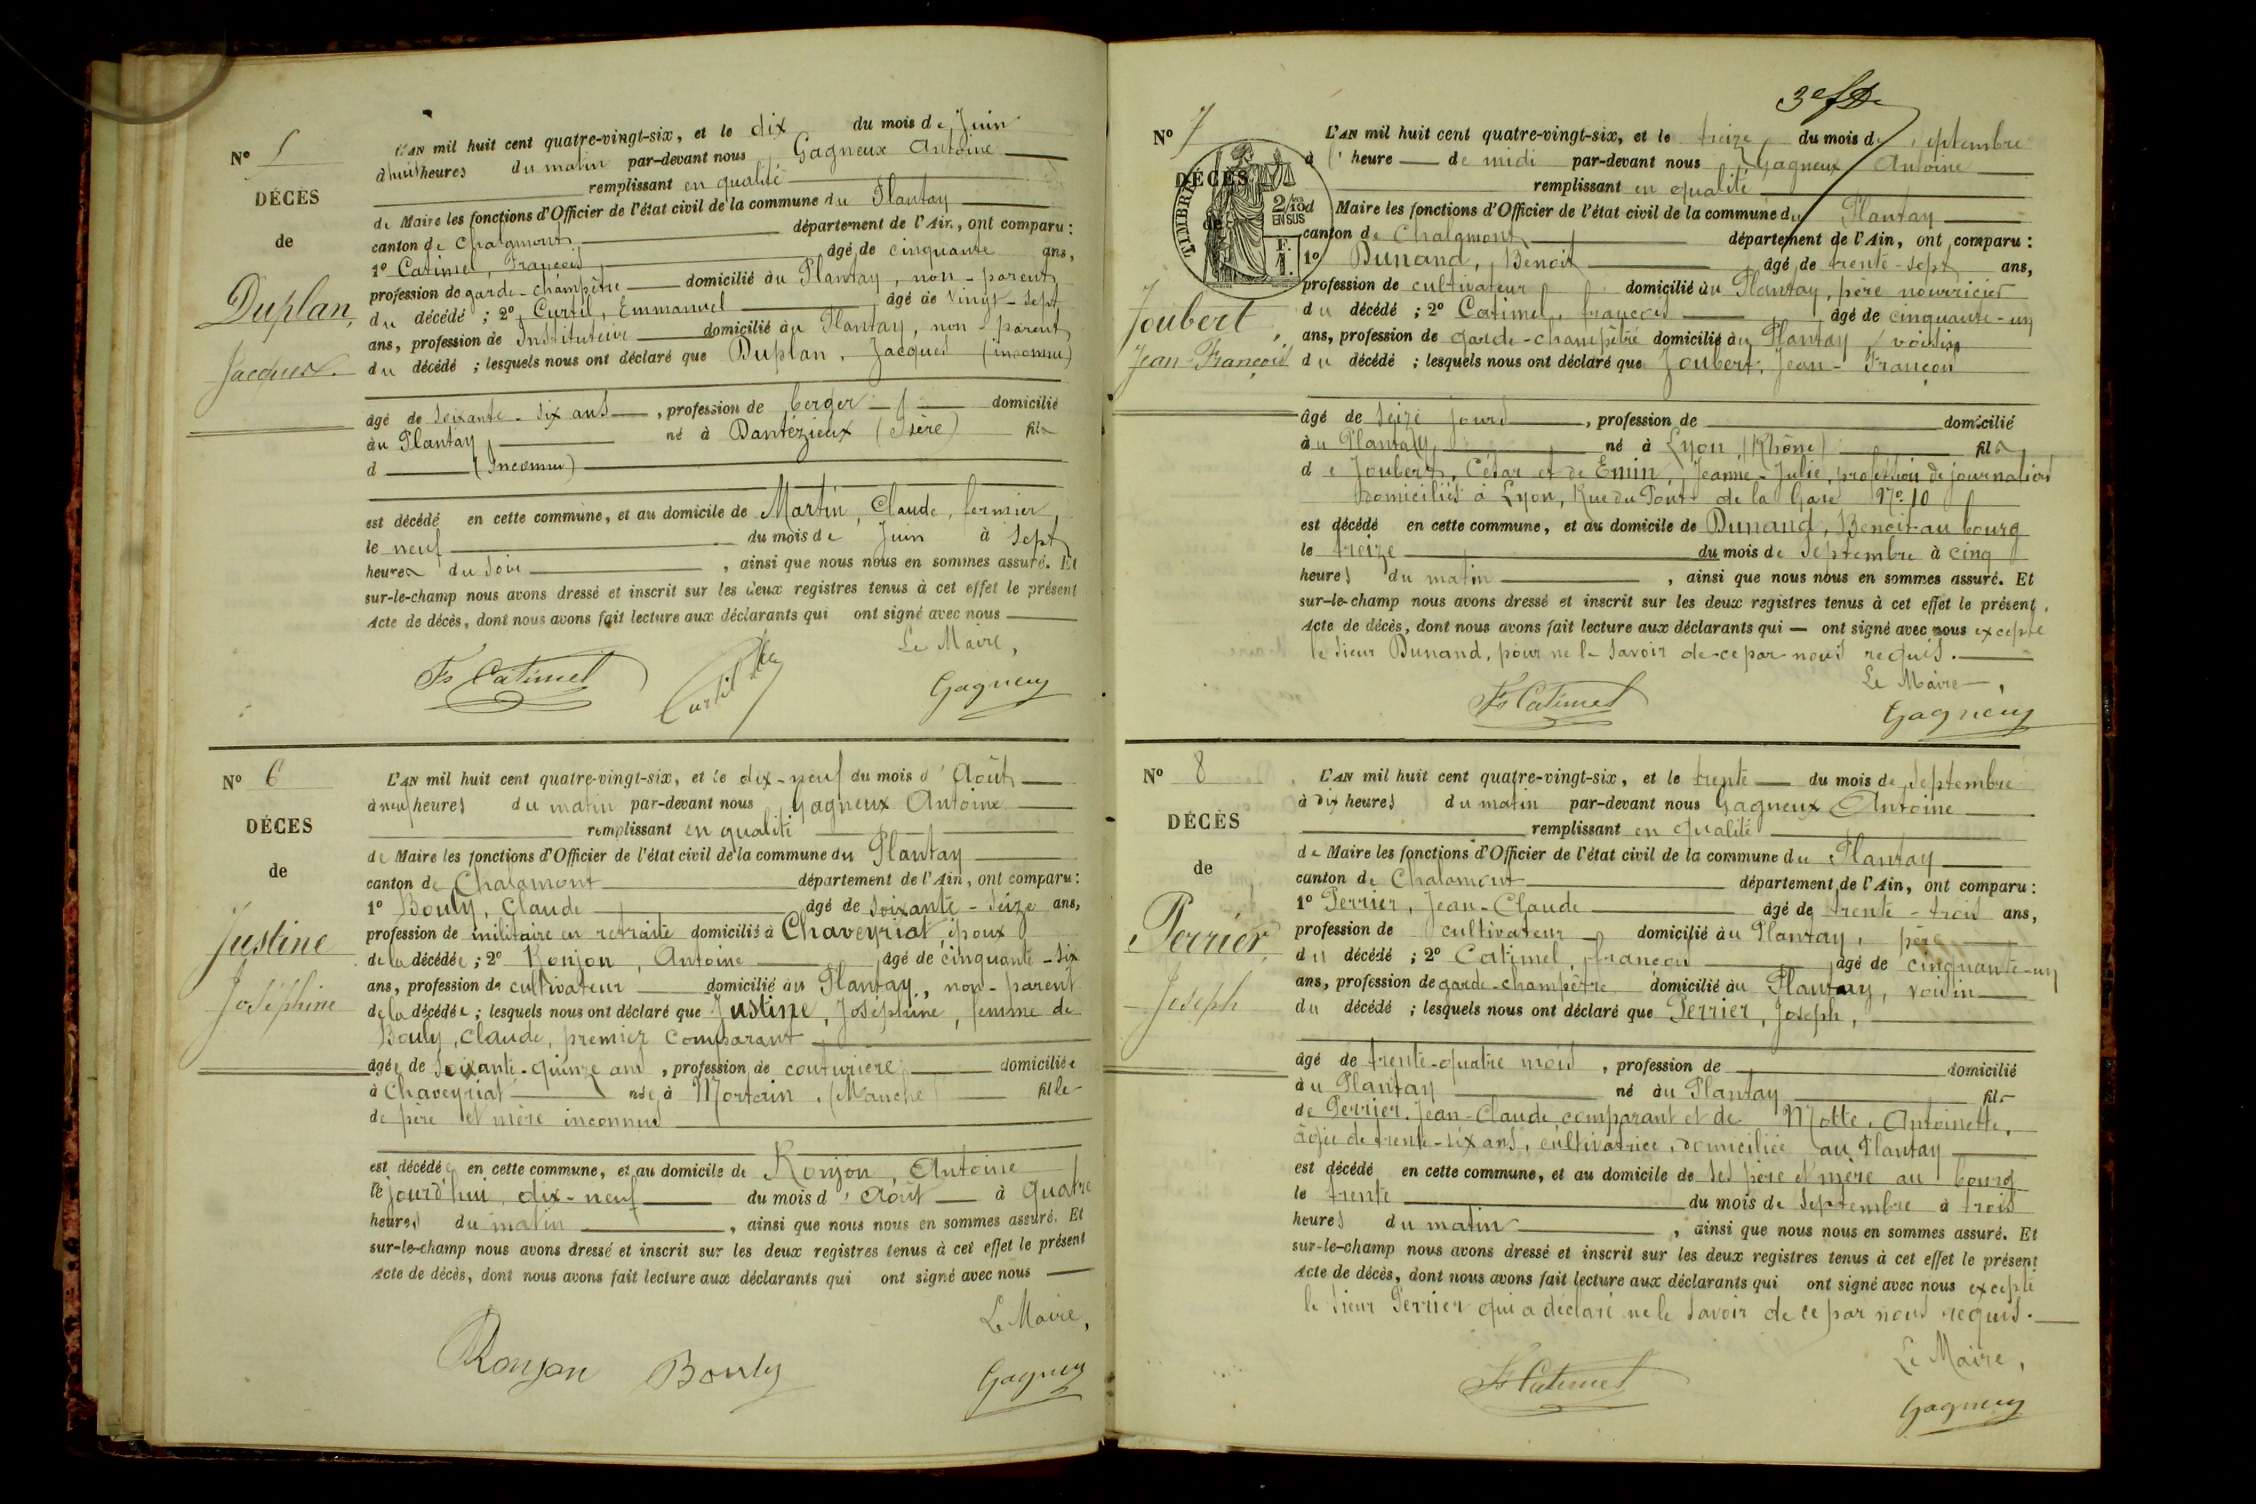 N° 5
DÉCÈS
de
Duplan,
Jacques.
L'AN mil huit cent quatre-vingt-six, et le dix du mois de Juin
à huit heures du matin par-devant nous Gagneux Antoine
remplissant en qualité
de Maire les fonctions d'Officier de l'état civil de la commune du Plantay
canton de Chalamont département de l'Ain, ont comparu :
1° Catimel, François âgé de cinquante ans,
profession de garde-champêtre domicilié au Plantay, non-parent
du décédé ; 2° Curtil, Emmanuel âgé de vingt-sept
ans, profession de Instituteur domicilié au Plantay, non-parent
du décédé ; lesquels nous ont déclaré que Duplan, Jacques (inconnu)
âgé de soixante-six ans, profession de berger domicilié
au Plantay né à Dantézieux (Isère) fils
d (Inconnu)
est décédé en cette commune, et au domicile de Martin, Claude, fermier,
le neuf du mois de Juin à sept
heures du soir, ainsi que nous nous en sommes assuré. Et
sur-le-champ nous avons dressé et inscrit sur les deux registres tenus à cet effet le présent
Acte de décès, dont nous avons fait lecture aux déclarants qui ont signé avec nous
Le Maire,
Fs Catimel Curtil Gagneux
N° 6
DÉCES
de
Justine
Joséphine
L'AN mil huit cent quatre-vingt-six, et le dix-neuf du mois d'Août
à neuf heures du matin par-devant nous Gagneux Antoine
remplissant en qualité
de Maire les fonctions d'Officier de l'état civil de la commune du Plantay
canton de Chalamont département de l'Ain, ont comparu :
1° Bouly, Claude âgé de soixante-seize ans,
profession de militaire en retraite domicilié à Chaveyriat, époux
de la décédée ; 2° Ronjon, Antoine âgé de cinquante-six
ans, profession de cultivateur domicilié au Plantay, non-parent
de la décédée ; lesquels nous ont déclaré que Justine, Joséphine, femme de
Bouly, Claude, premier comparant
âgée de soixante-quinze ans, profession de couturière domiciliée
à Chaveyriat née à Mortain (Manche) fille
de père et mère inconnus
est décédée en cette commune, et au domicile de Ronjon, Antoine
le jourd'hui dix-neuf du mois d'Août à quatre
heures du matin, ainsi que nous nous en sommes assuré. Et
sur-le-champ nous avons dressé et inscrit sur les deux registres tenus à cet effet le présent
Acte de décès, dont nous avons fait lecture aux déclarants qui ont signé avec nous
Le Maire,
Ronjon Bouly Gagneux
N° 7
DÉCÈS
de
Joubert,
Jean-François
TIMBRE
2/10d
EN SUS
L'AN mil huit cent quatre-vingt-six, et le treize du mois de Septembre
à l'heure de midi par-devant nous Gagneux Antoine
remplissant en qualité
Maire les fonctions d'Officier de l'état civil de la commune du Plantay
canton de Chalamont département de l'Ain, ont comparu :
1° Dunand, Benoit âgé de trente-sept ans,
profession de cultivateur domicilié au Plantay, père nourricier
du décédé ; 2° Catimel, françois âgé de cinquante-un
ans, profession de garde-champêtre domicilié au Plantay, voisin
du décédé ; lesquels nous ont déclaré que Joubert, Jean-François
âgé de seize jours, profession de domicilié
au Plantay né à Lyon (Rhône) fils
de Joubert, César et de Emin, Jeanne-Julie, profession de journaliers
domiciliés à Lyon, Rue du Pont de la Gare N° 10
est décédé en cette commune, et au domicile de Dunand, Benoit au bourg
le treize du mois de Septembre à cinq
heures du matin, ainsi que nous nous en sommes assuré. Et
sur-le-champ nous avons dressé et inscrit sur les deux registres tenus à cet effet le présent
Acte de décès, dont nous avons fait lecture aux déclarants qui — ont signé avec nous excepté
le sieur Dunand, pour ne le savoir de ce par nous requis.
Le Maire,
Fs Catimel Gagneux
N° 8
DÉCÈS
de
Perrier,
Joseph
L'AN mil huit cent quatre-vingt-six, et le trente du mois de Septembre
à dix heures du matin par-devant nous Gagneux Antoine
remplissant en qualité
de Maire les fonctions d'Officier de l'état civil de la commune du Plantay
canton de Chalamont département de l'Ain, ont comparu :
1° Perrier, Jean-Claude âgé de trente-trois ans,
profession de cultivateur domicilié au Plantay, père
du décédé ; 2° Catimel, françois âgé de cinquante-un
ans, profession de garde-champêtre domicilié au Plantay, voisin
du décédé ; lesquels nous ont déclaré que Perrier, Joseph,
âgé de trente-quatre mois, profession de domicilié
au Plantay né au Plantay fils
de Perrier, Jean-Claude, comparant et de Motte, Antoinette,
âgée de trente-six ans, cultivatrice, domiciliée au Plantay
est décédé en cette commune, et au domicile de ses père et mère au bourg
le trente du mois de Septembre à trois
heures du matin, ainsi que nous nous en sommes assuré. Et
sur-le-champ nous avons dressé et inscrit sur les deux registres tenus à cet effet le présent
Acte de décès, dont nous avons fait lecture aux déclarants qui ont signé avec nous excepté
le sieur Perrier qui a déclaré ne le savoir de ce par nous requis.
Le Maire,
Fs Catimel Gagneux